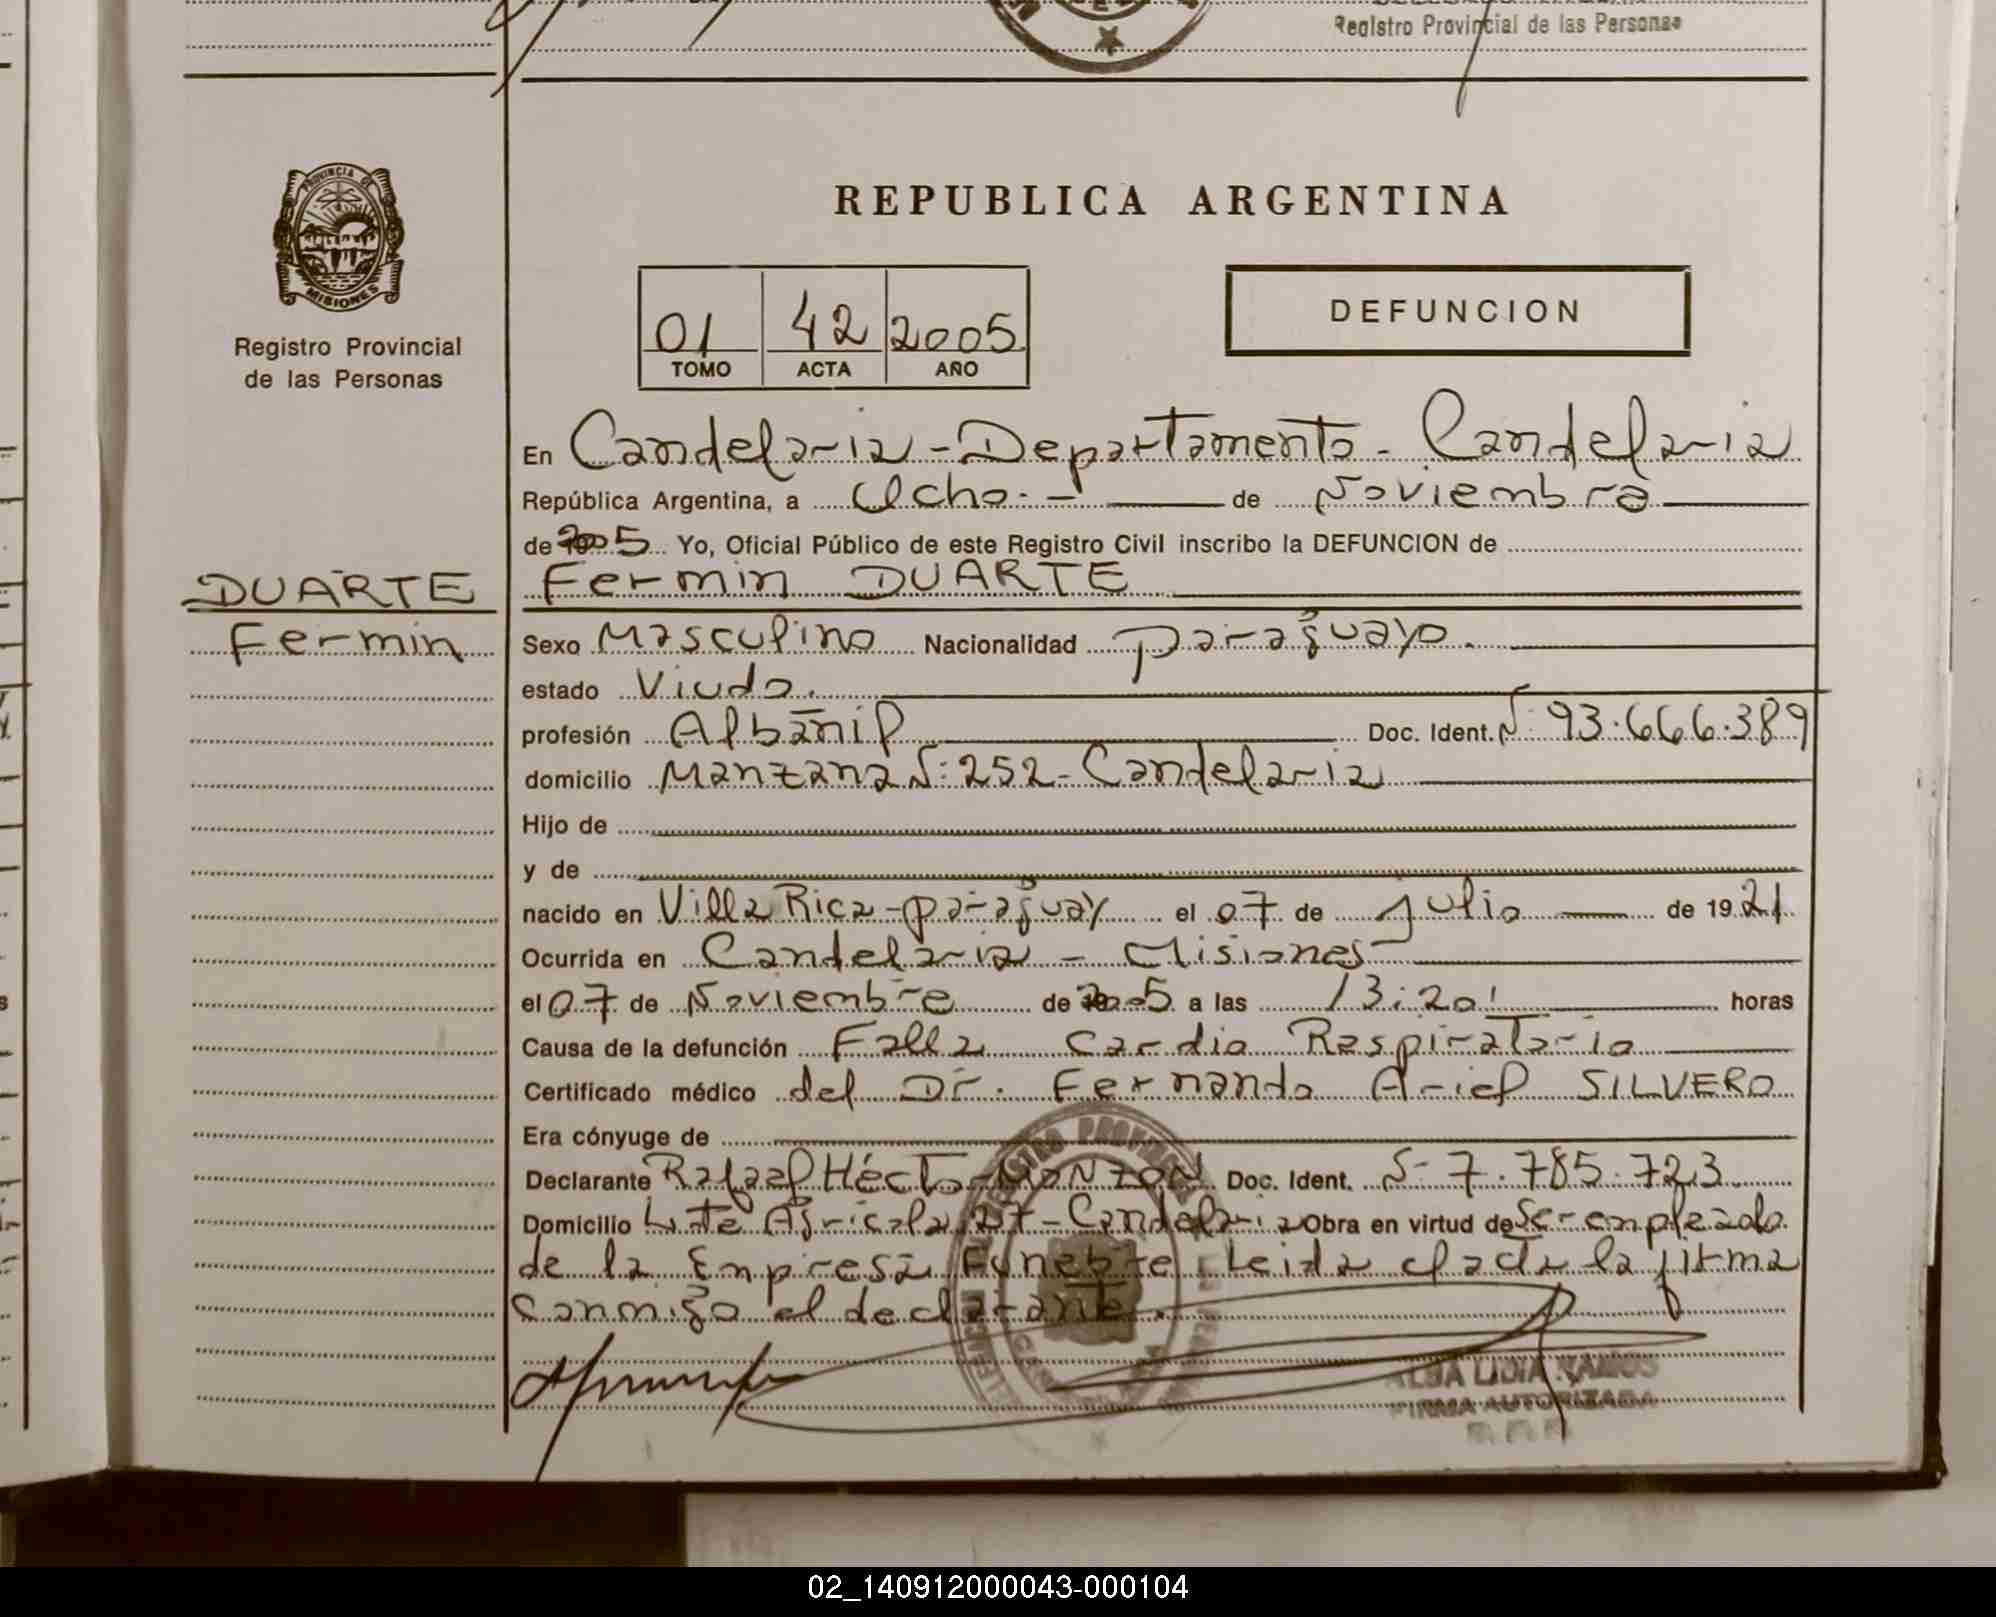 Registro Provincial de las Personas
PROVINCIA DE
MISIONES
Registro Provincial
de las Personas
REPUBLICA ARGENTINA
01 42 2005
TOMO ACTA AÑO
DEFUNCION
En Candelaria - Departamento - Candelaria
República Argentina, a Ocho.- de Noviembre
de 2005 Yo, Oficial Público de este Registro Civil inscribo la DEFUNCION de
DUARTE
Fermin DUARTE
Fermin
Sexo Masculino Nacionalidad paraguayo.
estado Viudo.
profesión Albañil Doc. Ident. N: 93.666.389
domicilio Manzana N: 252 - Candelaria
Hijo de
y de
nacido en Villa Rica - paraguay el 07 de julio de 1921
Ocurrida en Candelaria - Misiones
el 07 de Noviembre de 2005 a las 13:20' horas
Causa de la defunción Falla Cardio Respiratorio
Certificado médico del Dr. Fernando Ariel SILVERO
Era cónyuge de
Declarante Rafael Héctor MONZON Doc. Ident. N- 7.785.723
Domicilio Lote Agricola 27 - Candelaria Obra en virtud de Ser empleado
de la Empresa Funebre Leida el acta la firma
conmigo el declarante.
ALBA LIDIA RAMOS
FIRMA AUTORIZADA
02_140912000043-000104